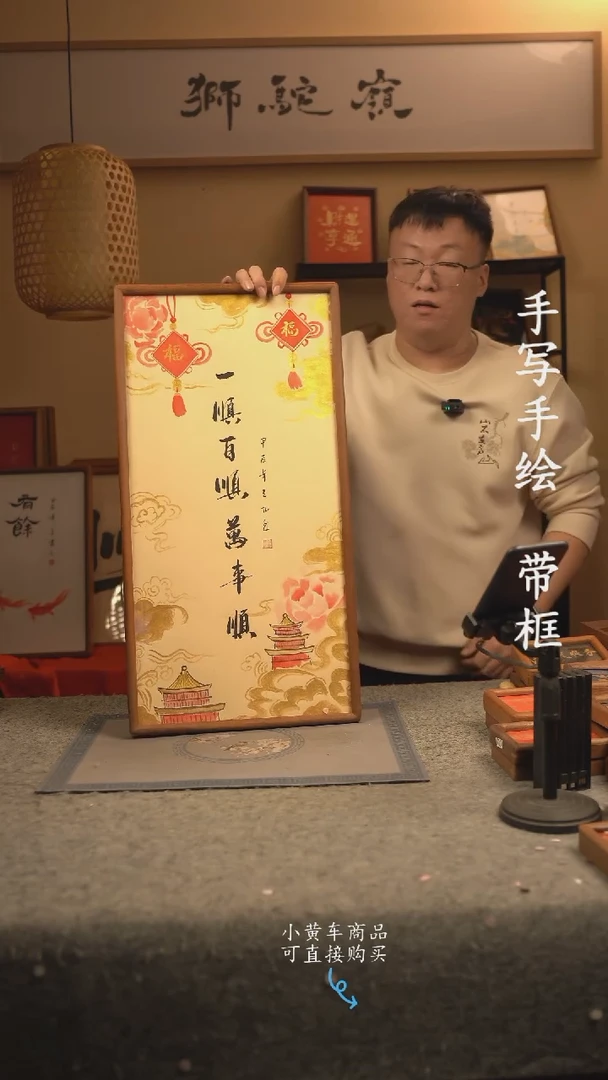 獅駝嶺
福
福
一順百順萬事順
有餘
手写手绘
带框
小黄车商品
可直接购买